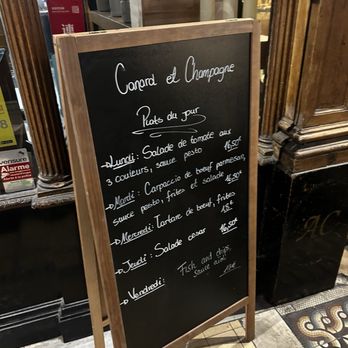 Canard et Champagne
Plats du jour
Lundi : Salade de tomate aux
3 couleurs, sauce pesto 16,50€
Mardi : Carpaccio de bœuf parmesan,
sauce pesto, frites et salade 16,50€
Mercredi : Tartare de bœuf, frites
15€
Jeudi : Salade cesar 16,50€
Vendredi : Fish and chips,
sauce aïoli
Alarme